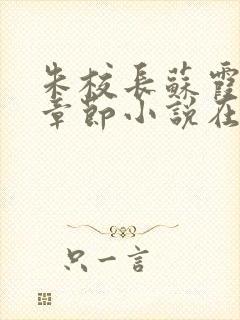 朱校長蘇霞
章節小說在
只一言